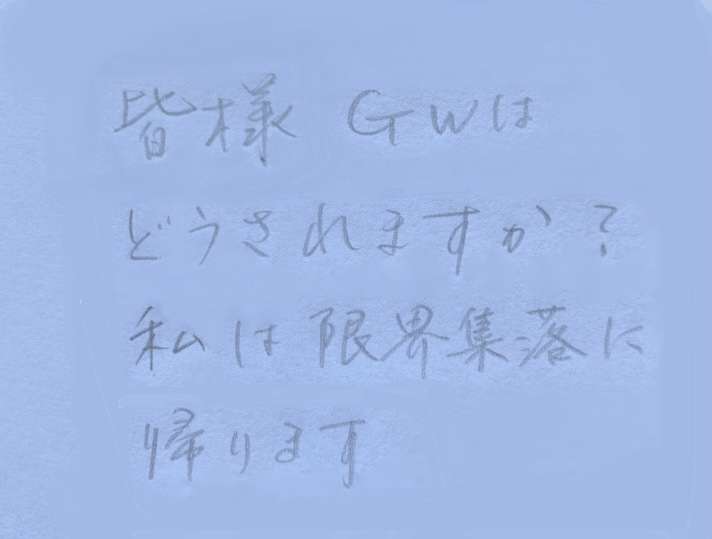 皆様 GWは
どうされますか?
私は限界集落に
帰ります